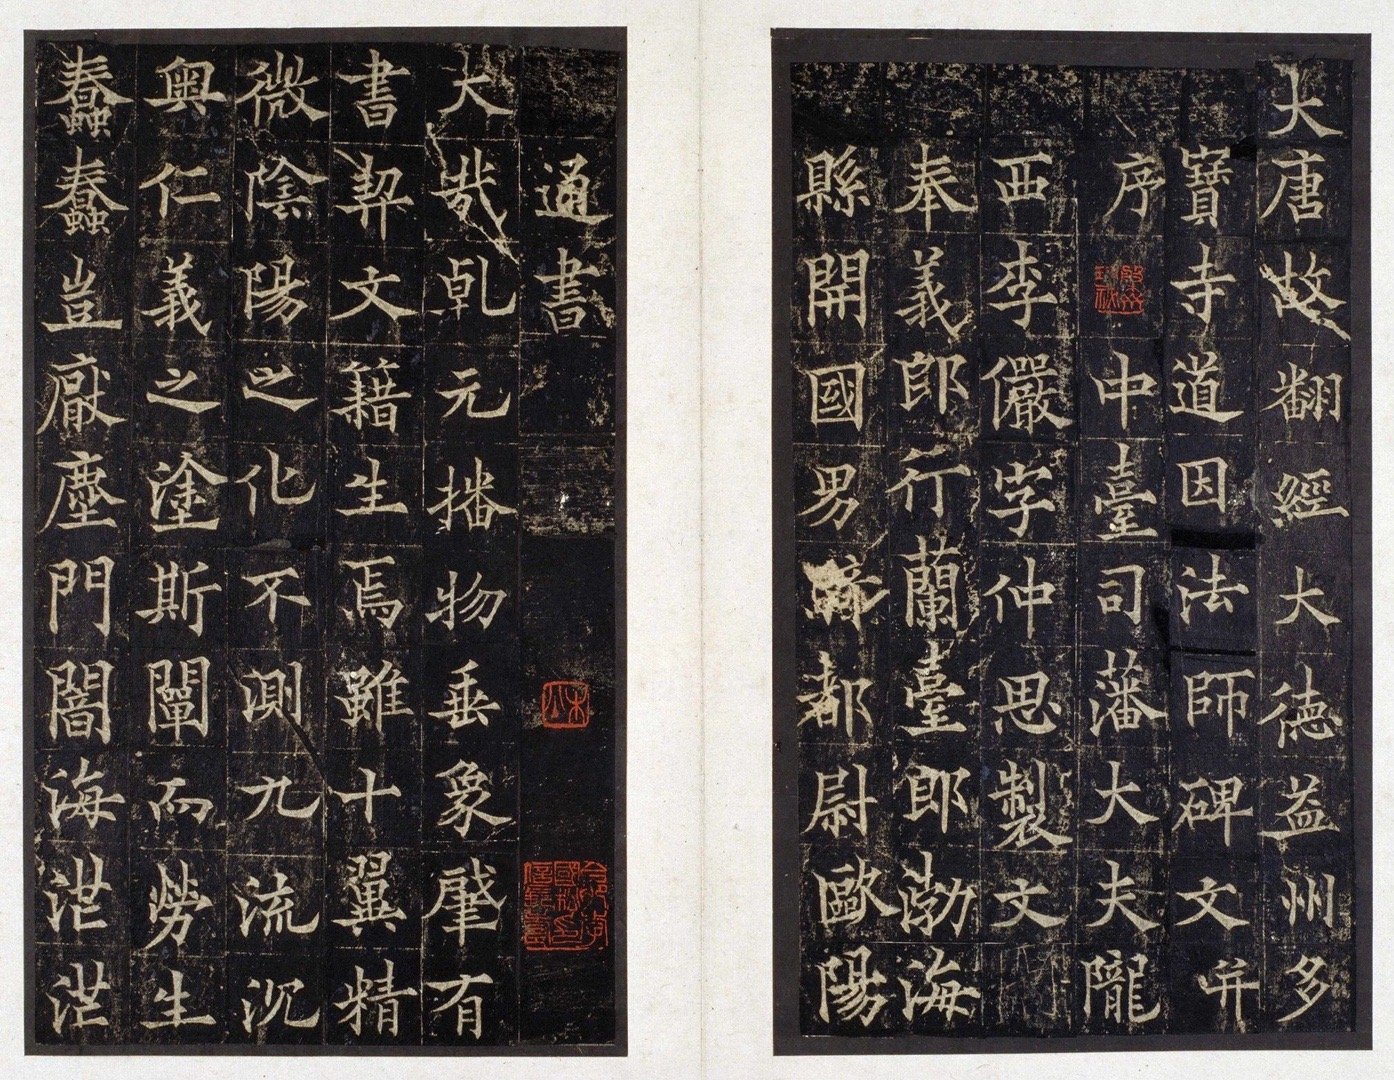 大唐故翻經大德益州多
寶寺道因法師碑文并
序 中臺司藩大夫隴
西李儼字仲思製文
奉義郎行蘭臺郎渤海
縣開國男都尉歐陽
通書
大哉乾元播物垂象肇有
書契文籍生焉雖十翼精
微陰陽之化不測九流沉
奧仁義之塗斯闡而勞生
蠢蠢豈厭塵門闇海茫茫